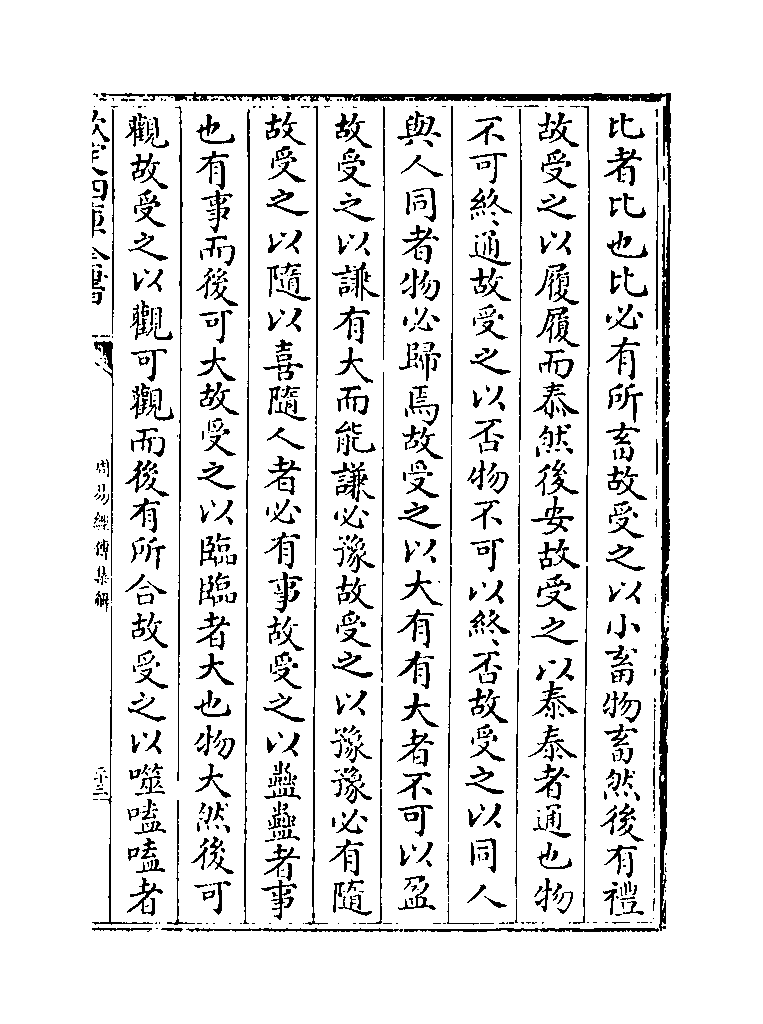 比者比也比必有所畜故受之以小畜物畜然後有禮
故受之以履履而泰然後安故受之以泰泰者通也物
不可終通故受之以否物不可以終否故受之以同人
與人同者物必歸焉故受之以大有有大者不可以盈
故受之以謙有大而能謙必豫故受之以豫豫必有隨
故受之以隨以喜隨人者必有事故受之以蠱蠱者事
也有事而後可大故受之以臨臨者大也物大然後可
觀故受之以觀可觀而後有所合故受之以噬嗑嗑者
欽定四庫全書
周易經傳集解
二十三